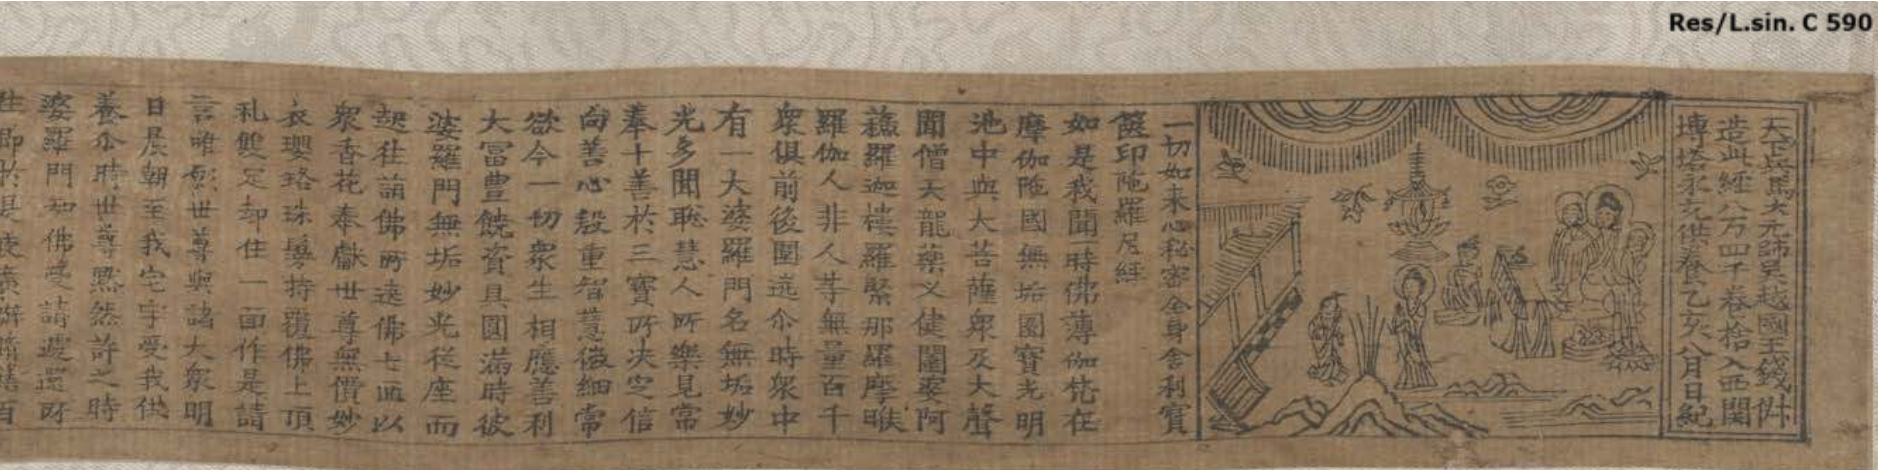 Res/L.sin. C 590
天下兵馬大元帥吳越國王錢俶
造此經八万四千卷捨入西關
塼塔永充供養乙亥八月日紀
一切如来心秘密全身舍利寳
篋印陁羅尼經
如是我聞一時佛薄伽梵在
摩伽陁國無垢園寳光明
池中與大菩薩衆及大聲
聞僧天龍藥叉健闥婆阿
蘇羅迦樓羅緊那羅摩睺
羅伽人非人等無量百千
衆俱前後圍遶尒時衆中
有一大婆羅門名無垢妙
光多聞聡慧人所樂見常
奉十善於三寳所决定信
向善心殷重智慧微細常
欲令一切衆生相應善利
大富豊饒資具圓滿時彼
婆羅門無垢妙光從座而
起往詣佛所遶佛七匝以
衆香花奉獻世尊無價妙
衣瓔珞珠鬘持覆佛上頂
礼雙足却住一面作是請
言唯願世尊與諸大衆明
日晨朝至我宅宇受我供
養尒時世尊黙然許之時
婆羅門知佛受請遽還所